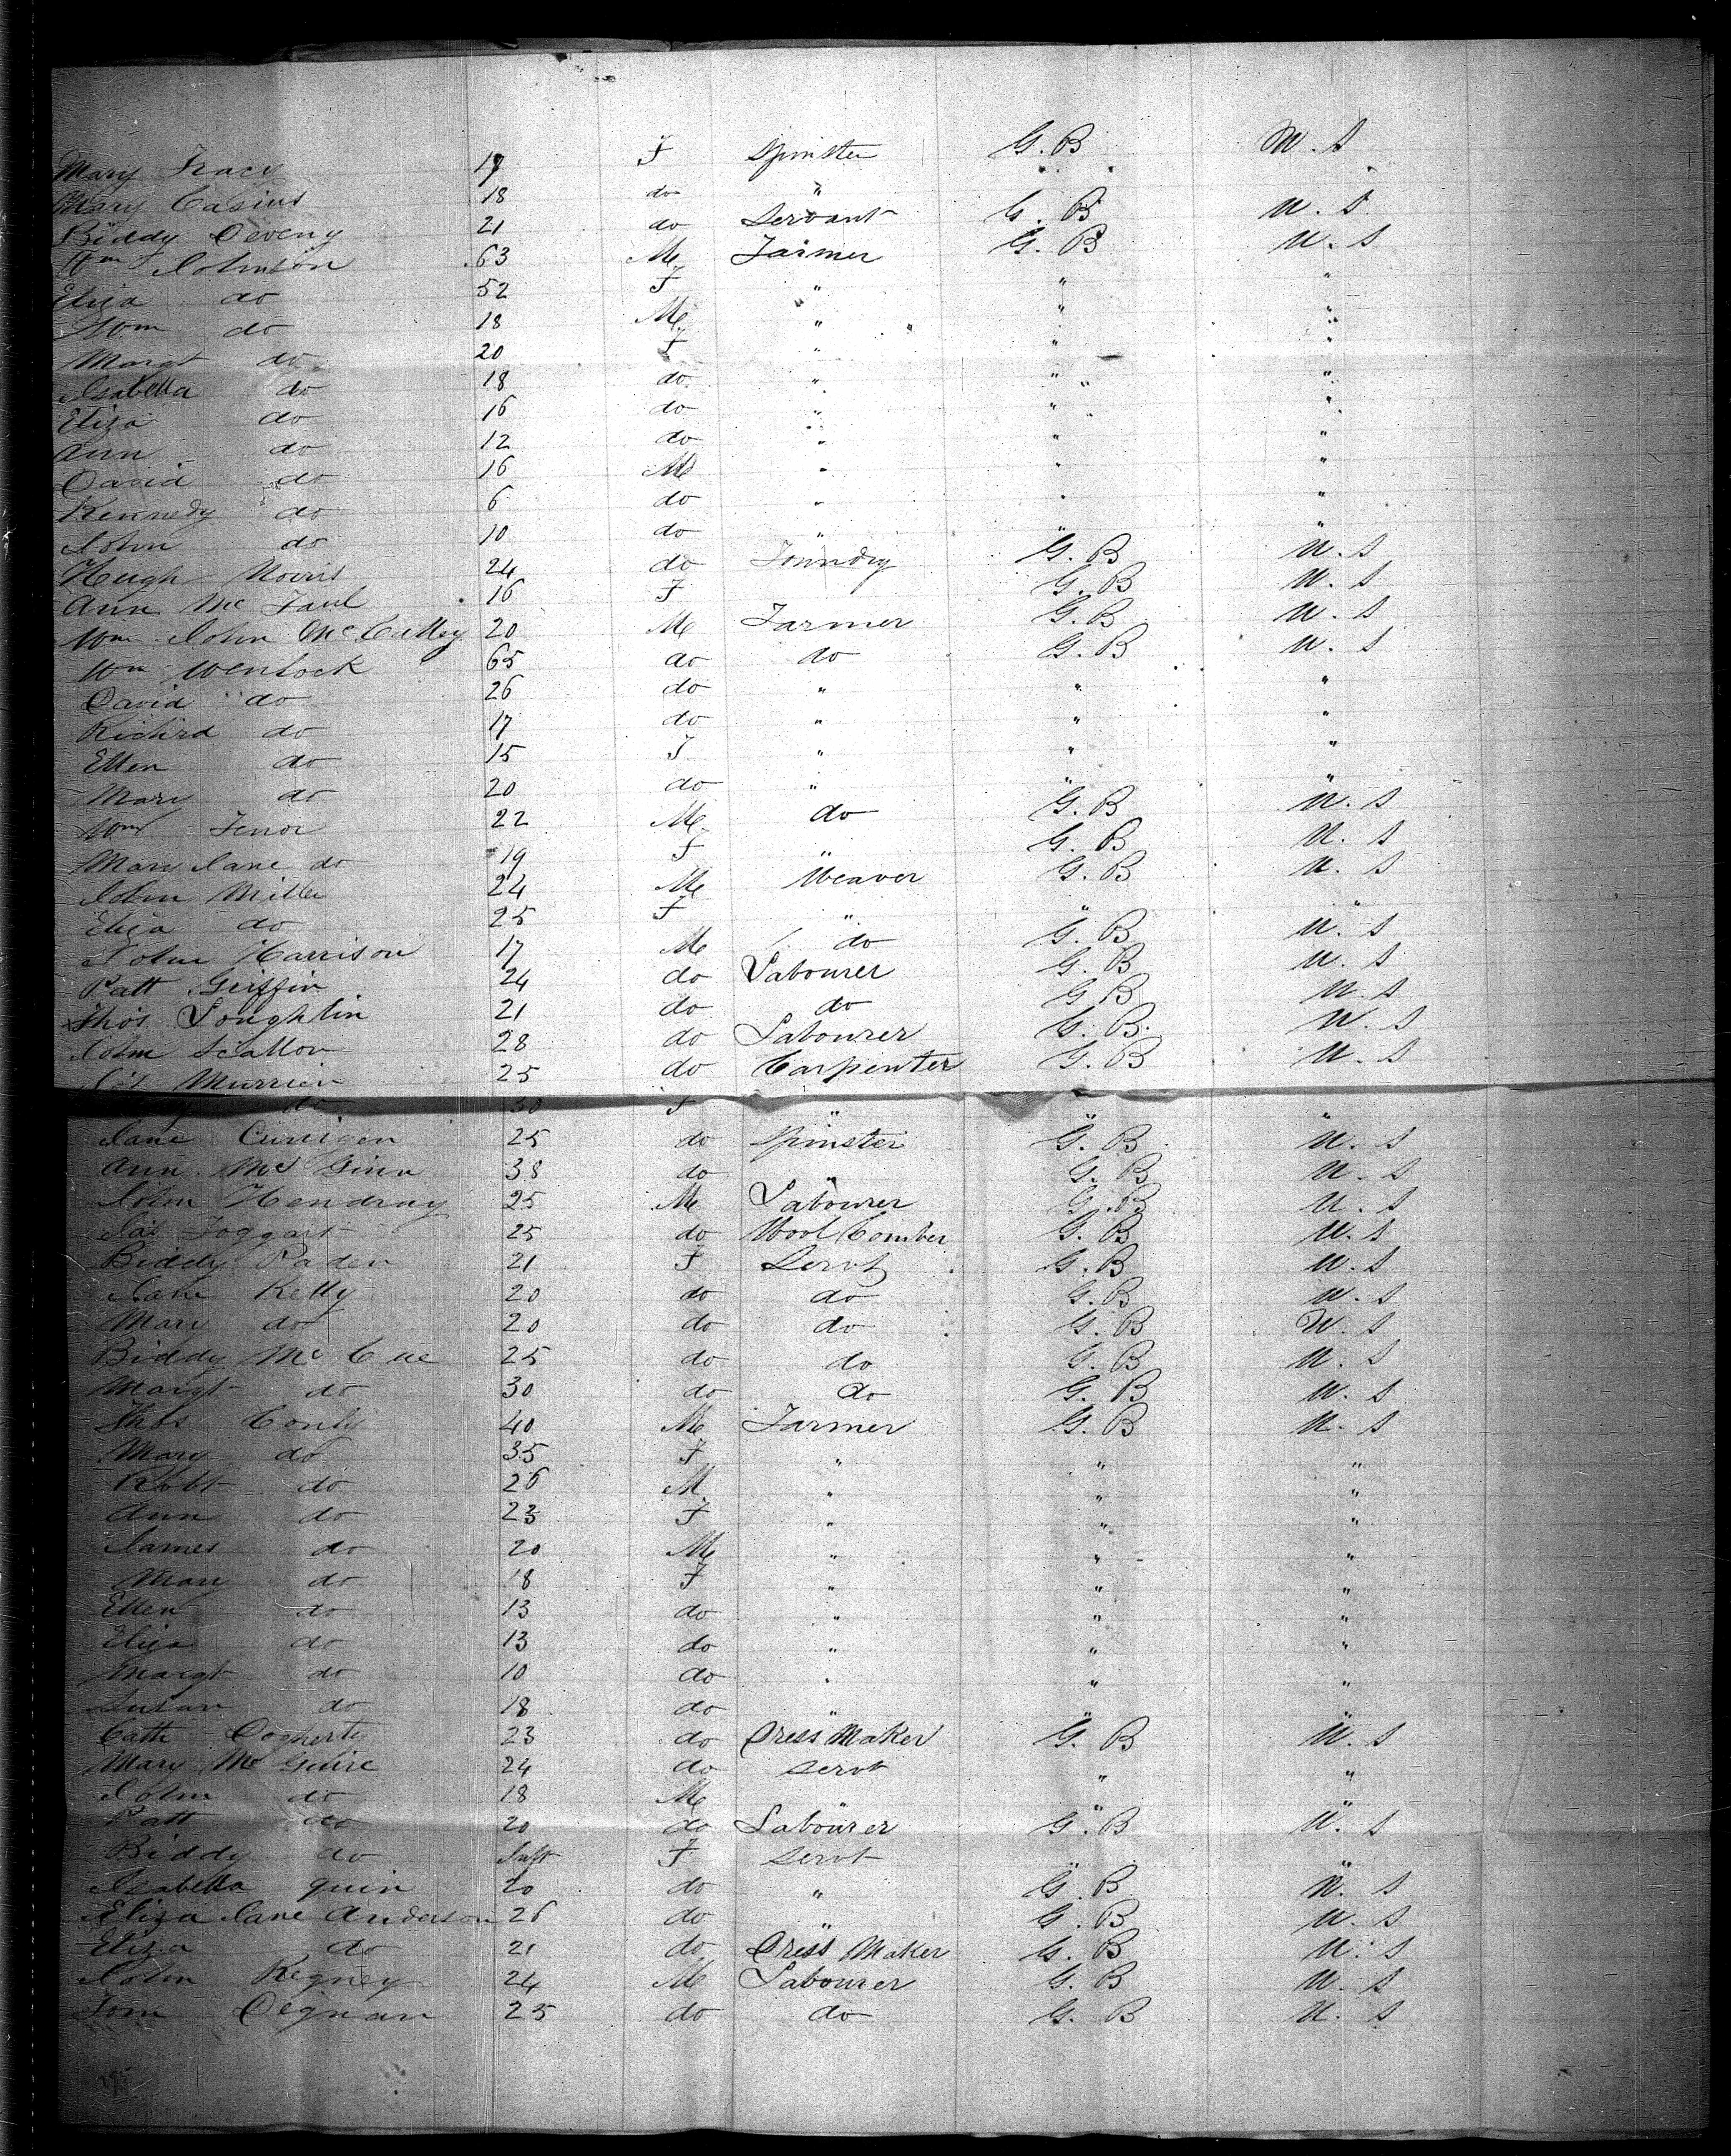 Mary Tracy 17 F Spinster G.B U.S
Mary Casins 18 do "
Biddy Deveny 21 do Servant G.B U.S
Wm Johnson 63 M Farmer G.B U.S
Eliza do 52 F " " "
Wm do 18 M " " "
Margt do 20 F " " "
Isabella do 18 do " " "
Eliza do 16 do " " "
Ann do 12 do " " "
David do 16 M " " "
Kennedy do 6 do " " "
John do 10 do " " "
Hugh Norris 24 do Foundry G.B U.S
Ann Mc Faul 16 F G.B U.S
Wm John McCalley 20 M Farmer G.B U.S
Wm Wenlock 65 do do G.B U.S
David do 26 do " " "
Richrd do 17 do " " "
Ellen do 15 F " " "
Mary do 20 do " " "
Wm Fenor 22 M do G.B U.S
Mary Jane do 19 F " G.B U.S
John Miller 24 M Weaver G.B U.S
Eliza do 25 F " " "
John Harrison 17 M do G.B U.S
Patt Griffin 24 do Labourer G.B U.S
Thos Loughlin 21 do do G.B U.S
John Scallon 28 do Labourer G.B. U.S
Jas Murrien 25 do Carpenter G.B U.S
do 30 F " " "
Jane Currigen 25 do Spinster G.B U.S
Ann Mc Ginn 38 do " G.B U.S
John Hendray 25 M Labourer G.B U.S
Jas Foggart 25 do Wool Comber G.B U.S
Biddy Paden 21 F Servt G.B U.S
Jane Kelly 20 do do G.B U.S
Mary do 20 do do G.B U.S
Biddy Mc Cue 25 do do G.B U.S
Margt do 30 do do G.B U.S
Thos Conly 40 M Farmer G.B U.S
Mary do 35 F " " "
Robt do 26 M " " "
Ann do 23 F " " "
James do 20 M " " "
Mary do 18 F " " "
Ellen do 13 do " " "
Eliza do 13 do " " "
Margt do 10 do " " "
Susan do 18 do " " "
Cath Dogherty 23 do Dress Maker G.B U.S
Mary Mc Guire 24 do Servt " "
John do 18 M " " "
Patt do 20 do Labourer G.B U.S
Biddy do Inft F Servt
Isabella quin 20 do " G.B U.S
Eliza Jane Anderson 26 do " G.B U.S
Eliza do 21 do Dress Maker G.B U.S
John Regney 24 M Labourer G.B U.S
Tom Degnan 25 do do G.B U.S